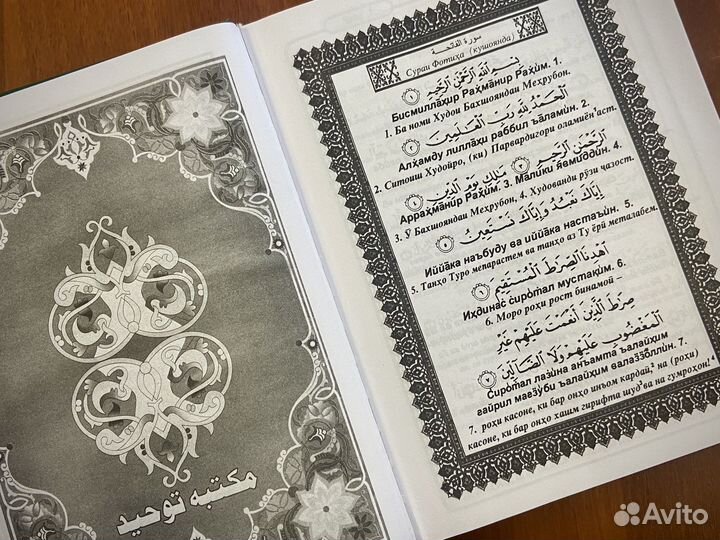 مكتبة توحيد
سورة الفاتحة
Сураи Фотиҳа (кушоянда)
بِسْمِ اللَّهِ الرَّحْمَٰنِ الرَّحِيمِ ١
Бисмиллāҳир Раҳмāнир Раҳūм. 1.
1. Ба номи Худои Бахшояндаи Меҳрубон.
الْحَمْدُ لِلَّهِ رَبِّ الْعَالَمِينَ ٢
Алҳамду лиллāҳи раббил ъāламūн. 2.
2. Ситоиш Худойро, (ки) Парвардигори оламиён¹аст.
الرَّحْمَٰنِ الرَّحِيمِ ٣ مَالِكِ يَوْمِ الدِّينِ ٤
Арраҳмāнир Раҳūм. 3. Мāлики явмиддūн. 4.
3. Ӯ Бахшояндаи Меҳрубон, 4. Худованди рӯзи ҷазост.
إِيَّاكَ نَعْبُدُ وَإِيَّاكَ نَسْتَعِينُ ٥
Иййāка наъбуду ва иййāка настаъūн. 5.
5. Танҳо Туро мепарастем ва танҳо аз Ту ёрӣ металабем.
اهْدِنَا الصِّرَاطَ الْمُسْتَقِيمَ ٦
Иҳдинас̇ с̇иротал мустақūм. 6.
6. Моро роҳи рост бинамой –
صِرَاطَ الَّذِينَ أَنْعَمْتَ عَلَيْهِمْ غَيْرِ
الْمَغْضُوبِ عَلَيْهِمْ وَلَا الضَّالِّينَ ٧
С̇иротал лазūна анъамта ъалайҳим
ғайрил мағз̇ӯби ъалайҳим валаз̇з̇оллūн. 7.
7. роҳи касоне, ки бар онҳо инъом кардаӣ,² на (роҳи)
касоне, ки бар онҳо хашм гирифта шуд³ва на гумроҳон!⁴
Avito